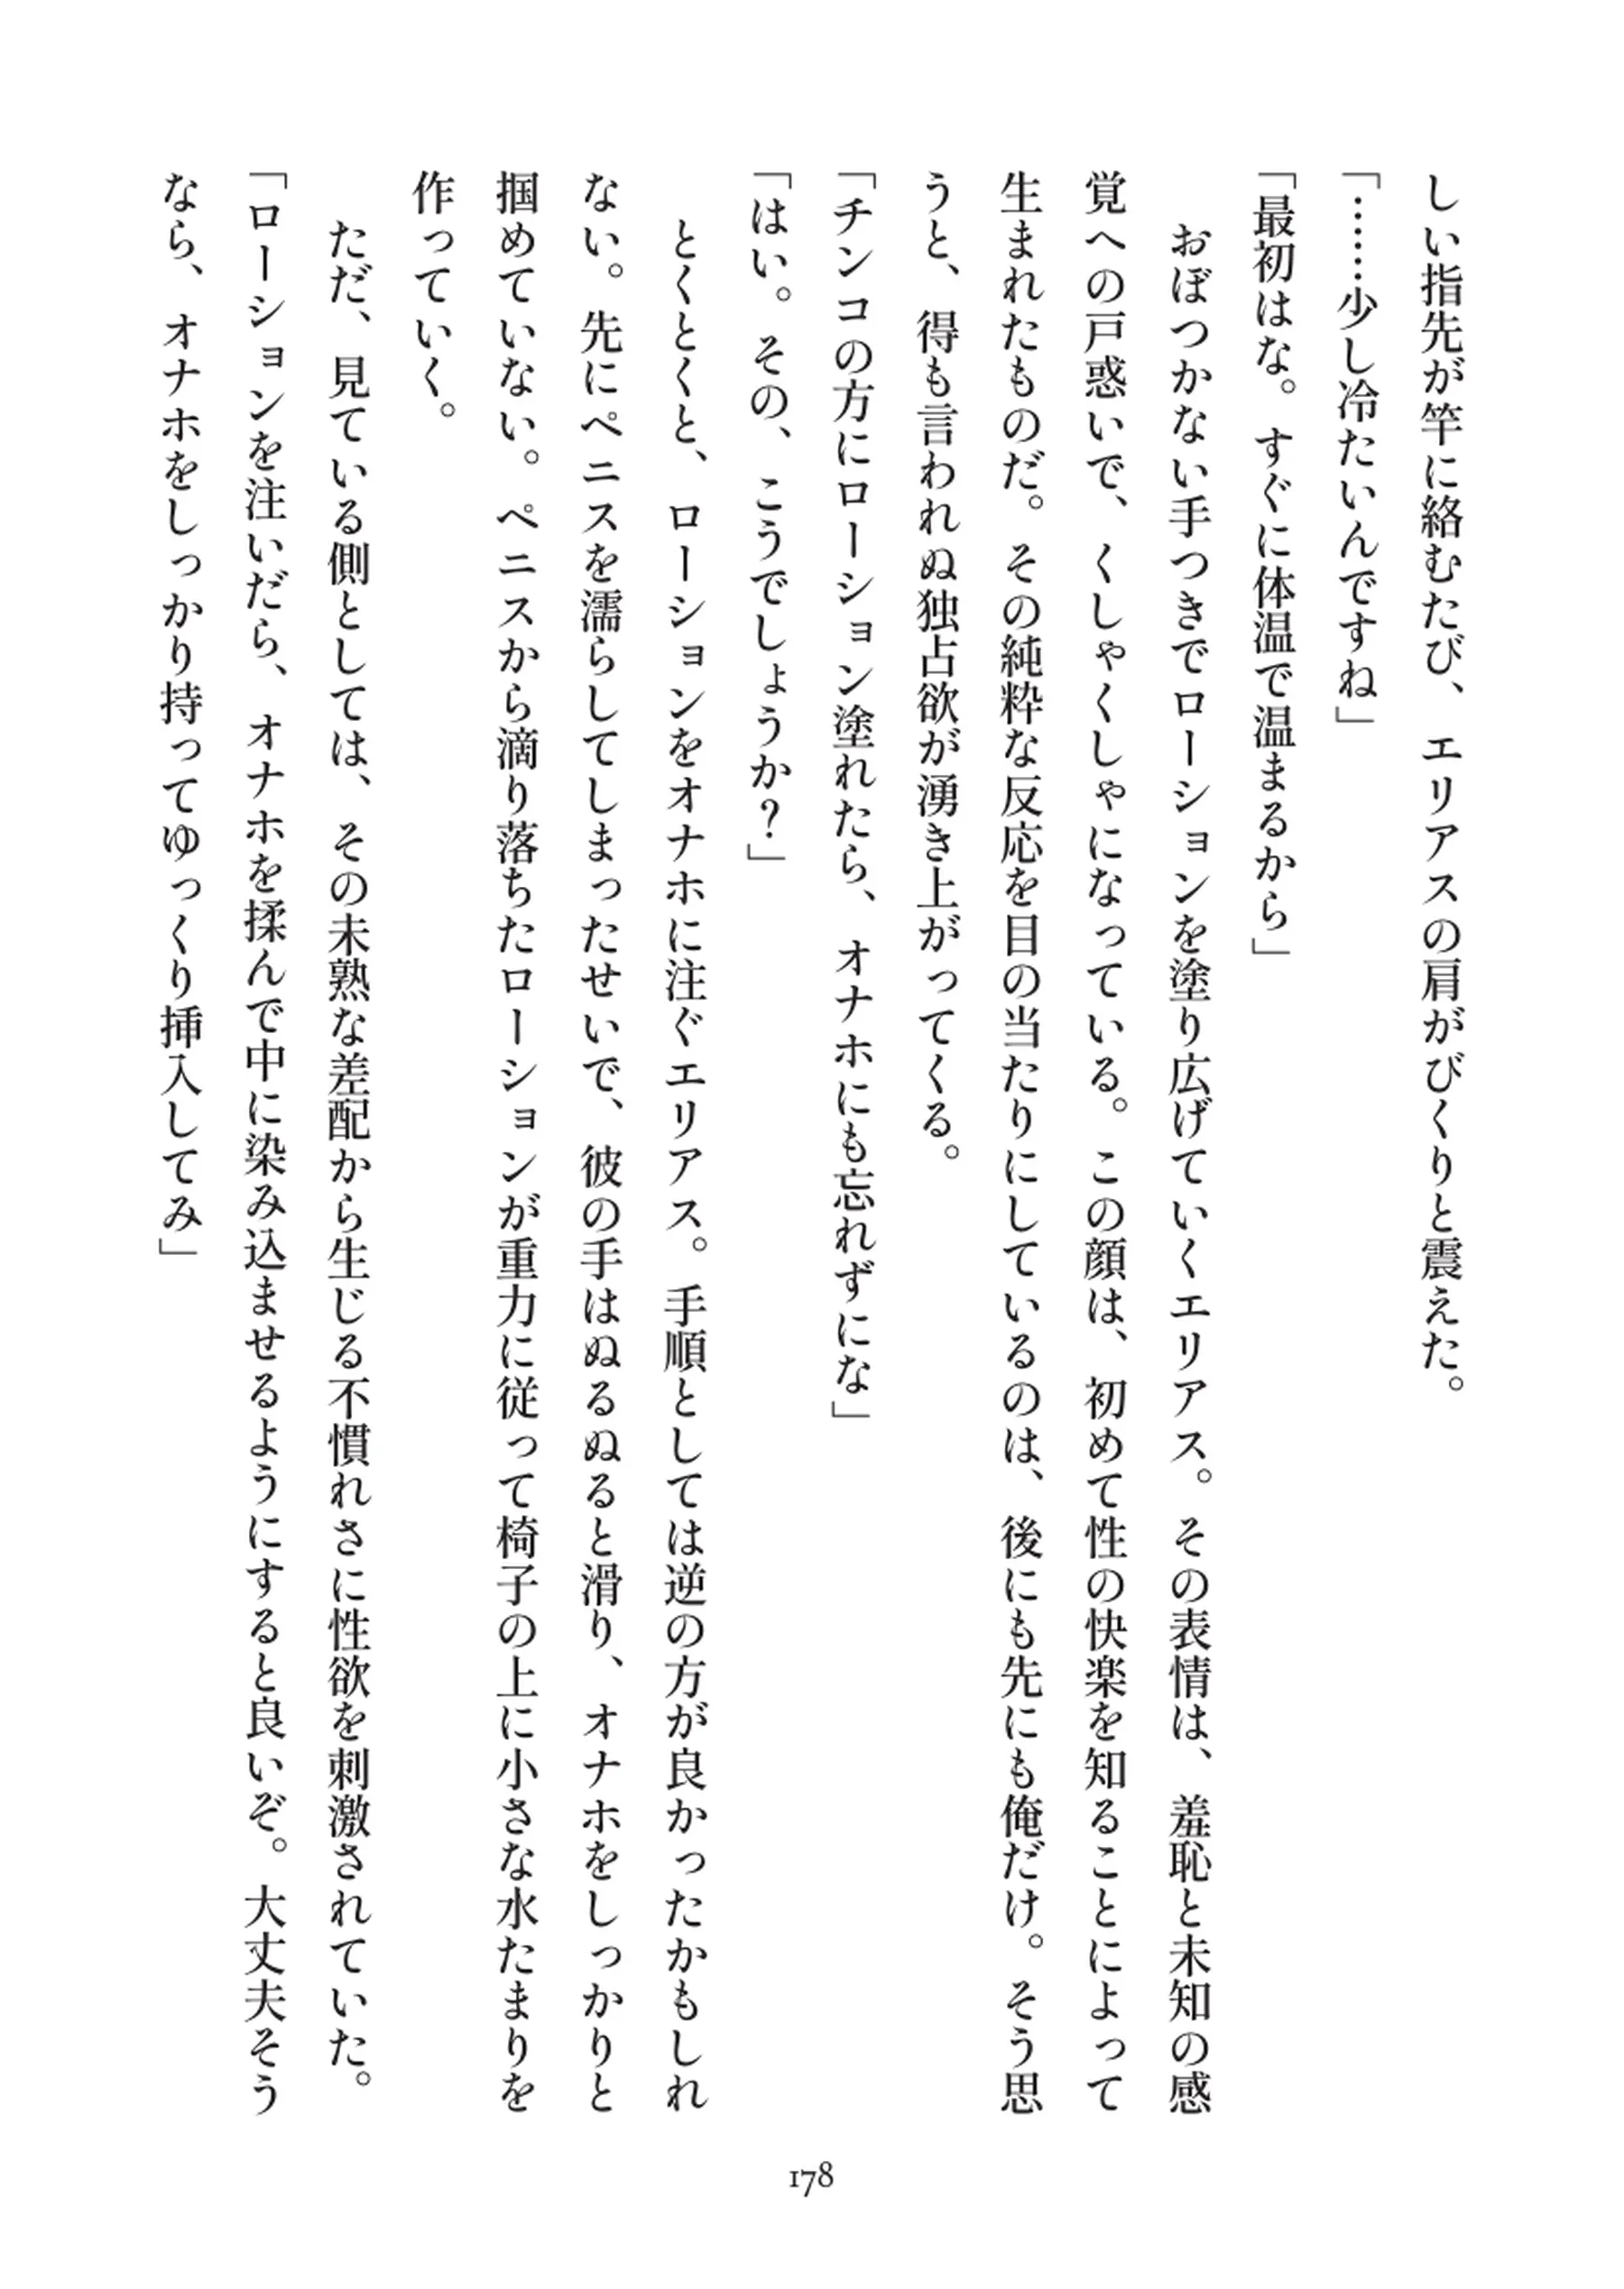 しい指先が竿に絡むたび、エリアスの肩がびくりと震えた。
「……少し冷たいんですね」
「最初はな。すぐに体温で温まるから」
　おぼつかない手つきでローションを塗り広げていくエリアス。その表情は、羞恥と未知の感
覚への戸惑いで、くしゃくしゃになっている。この顔は、初めて性の快楽を知ることによって
生まれたものだ。その純粋な反応を目の当たりにしているのは、後にも先にも俺だけ。そう思
うと、得も言われぬ独占欲が湧き上がってくる。
「チンコの方にローション塗れたら、オナホにも忘れずにな」
「はい。その、こうでしょうか？」
　とくとくと、ローションをオナホに注ぐエリアス。手順としては逆の方が良かったかもしれ
ない。先にペニスを濡らしてしまったせいで、彼の手はぬるぬると滑り、オナホをしっかりと
掴めていない。ペニスから滴り落ちたローションが重力に従って椅子の上に小さな水たまりを
作っていく。
　ただ、見ている側としては、その未熟な差配から生じる不慣れさに性欲を刺激されていた。
「ローションを注いだら、オナホを揉んで中に染み込ませるようにすると良いぞ。大丈夫そう
なら、オナホをしっかり持ってゆっくり挿入してみ」
178